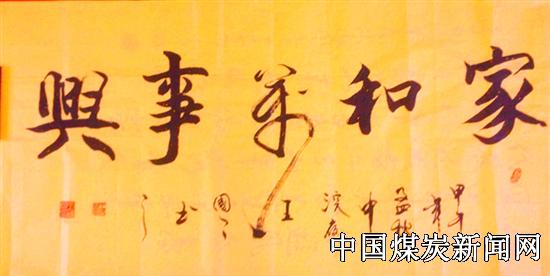 家和萬事興
甲午年
孟秋
中
王
國
书
中国煤炭新闻网